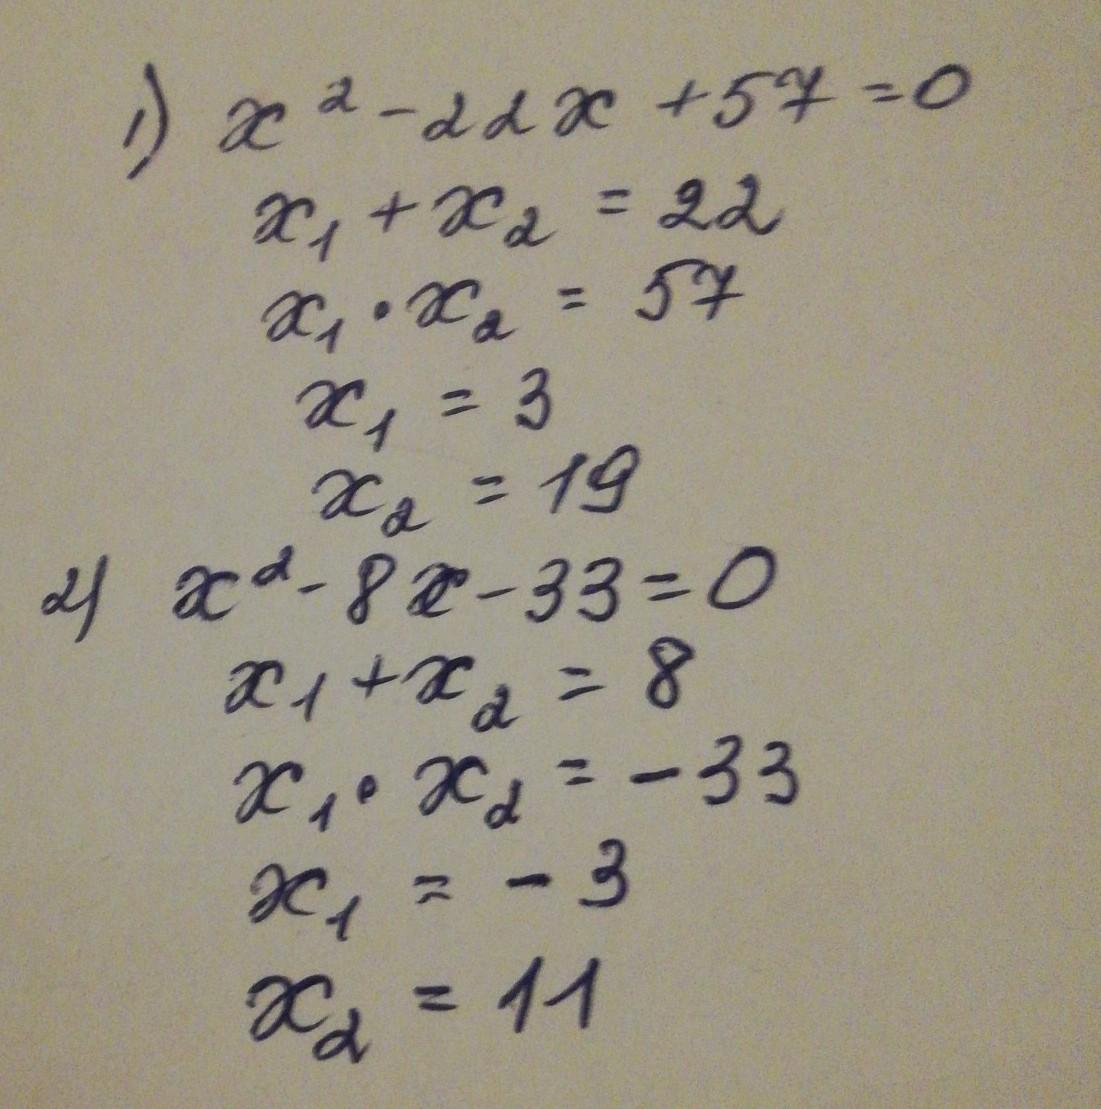 1) x² - 22x + 57 = 0
x₁ + x₂ = 22
x₁ · x₂ = 57
x₁ = 3
x₂ = 19
2) x² - 8x - 33 = 0
x₁ + x₂ = 8
x₁ · x₂ = -33
x₁ = -3
x₂ = 11